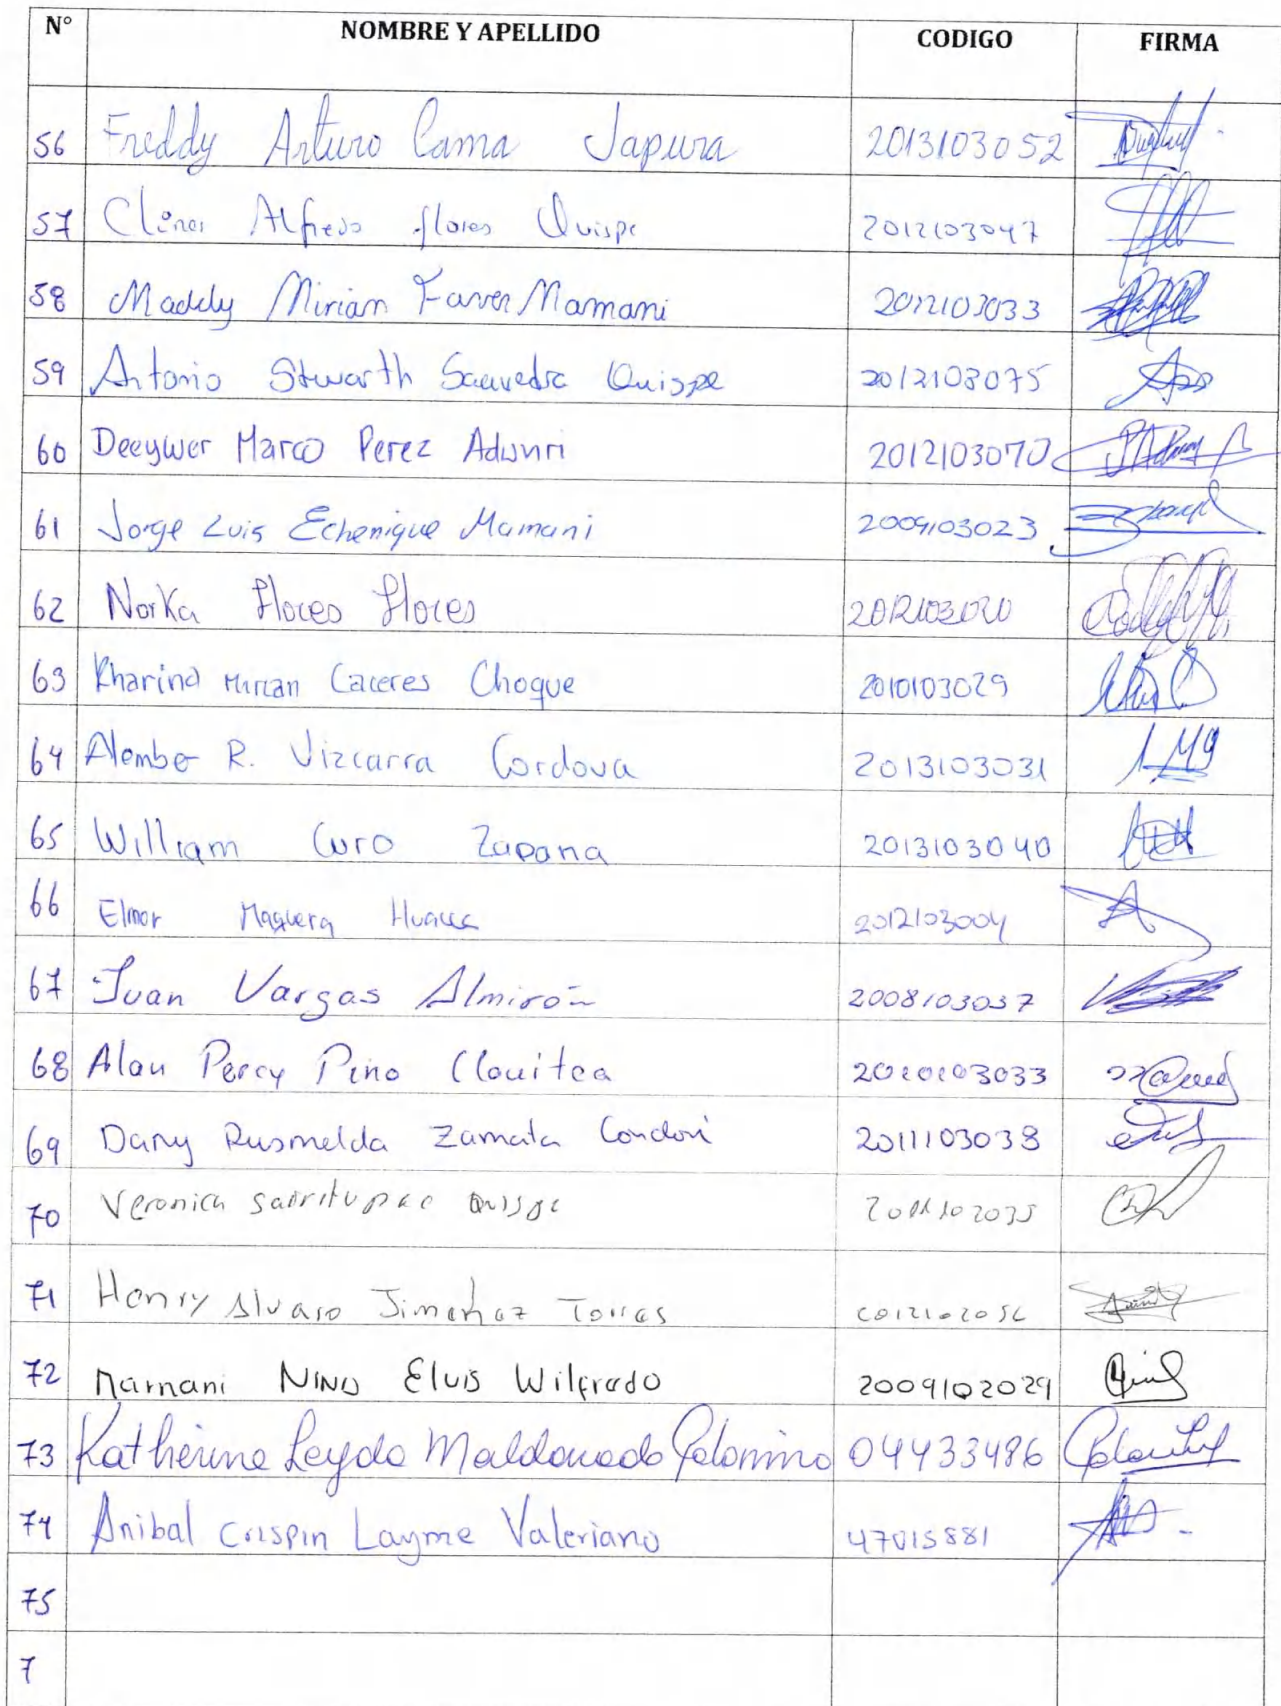 N° NOMBRE Y APELLIDO CODIGO FIRMA
56 Freddy Arturo Cama Japura 2013103052
57 Alfredo flores Quispe 2012103047
58 Maddy Mirian Faver Mamani 2012103033
59 Antonio Stwarth Saavedra Quispe 2012103075
60 Deeywer Marco Perez Aduviri 2012103070
61 Jorge Luis Echenique Mamani 2009103023
62 Norka Flores Flores
63 Kharina Mirian Caceres Choque 2010103029
64 R. Vizcarra Cordova 2013103031
65 William Curo Zapana 2013103040
66 Elmer Maquera 2012103004
67 Juan Vargas Almirón 2008103037
68 Alan Percy Pino 2010103033
69 Dany Rusmelda Zamata Condori 2011103038
70 Veronica Quispe
71 Henry Alvaro Jimenez Torres
72 Mamani NINO Elvis Wilfredo 2009102029
73 Katherine Leyda Maldonado Palomino 04433486
74 Anibal Crispin Layme Valeriano 47015881
75
7